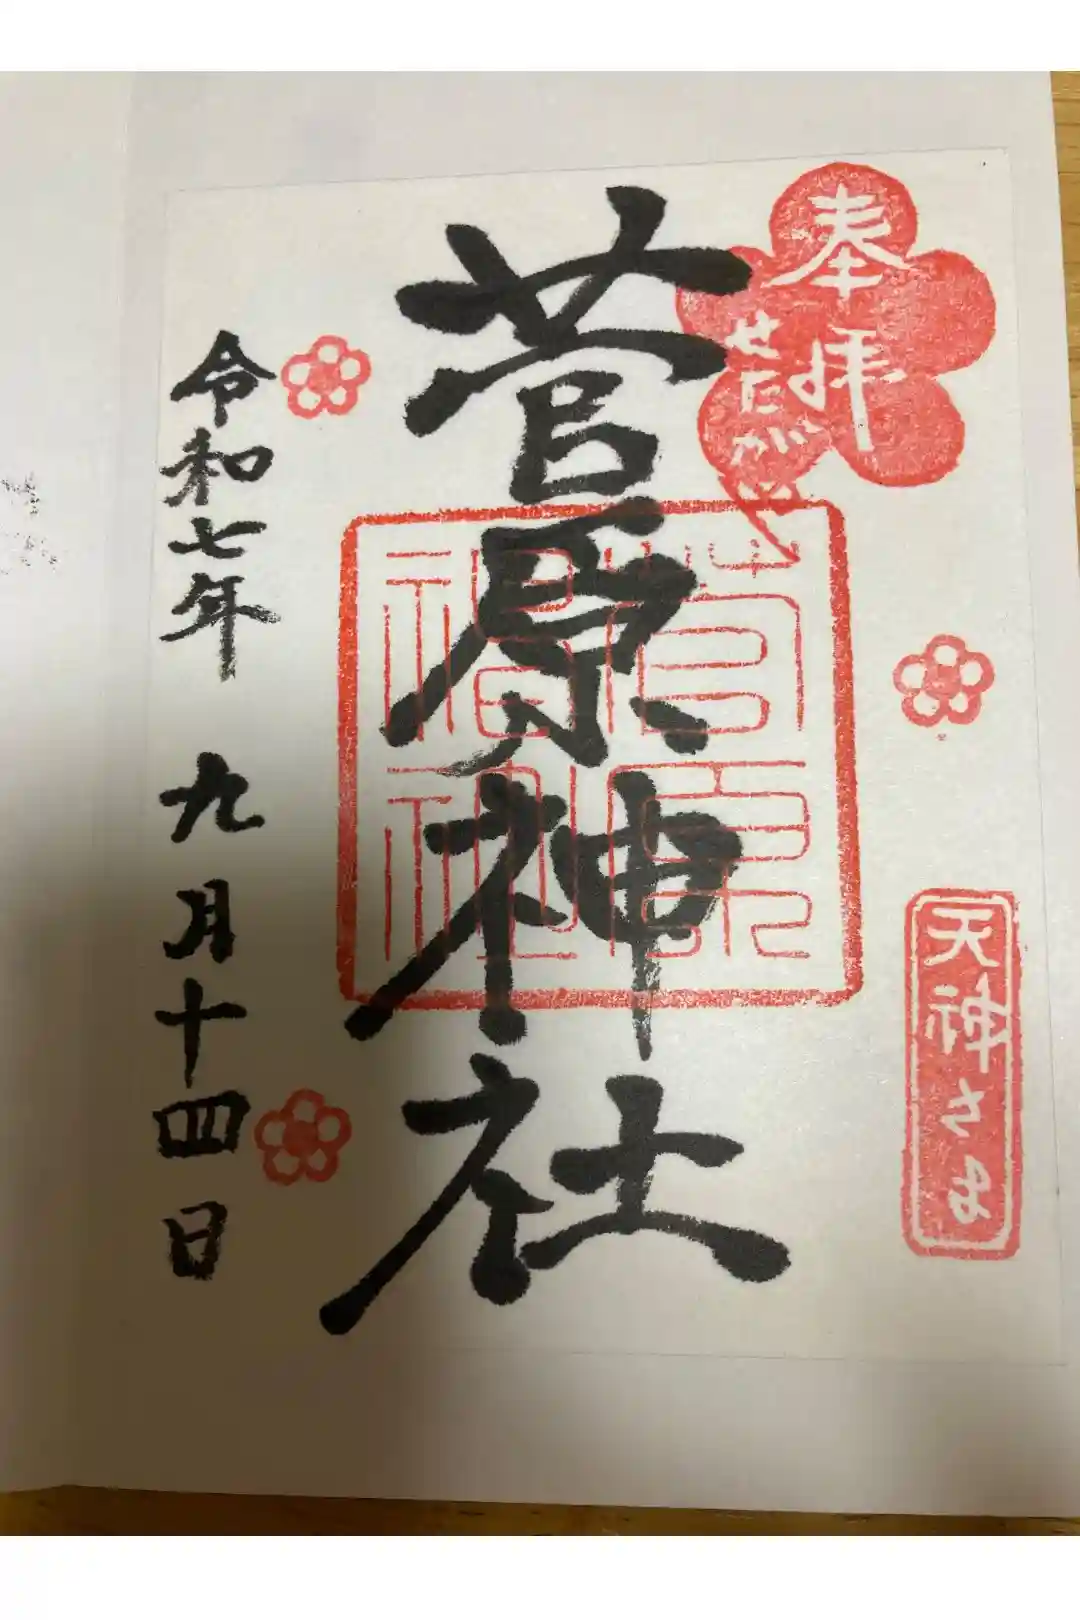 奉拝
せたがや
天神さま
菅原神社
菅原
神社
令和七年 九月十四日